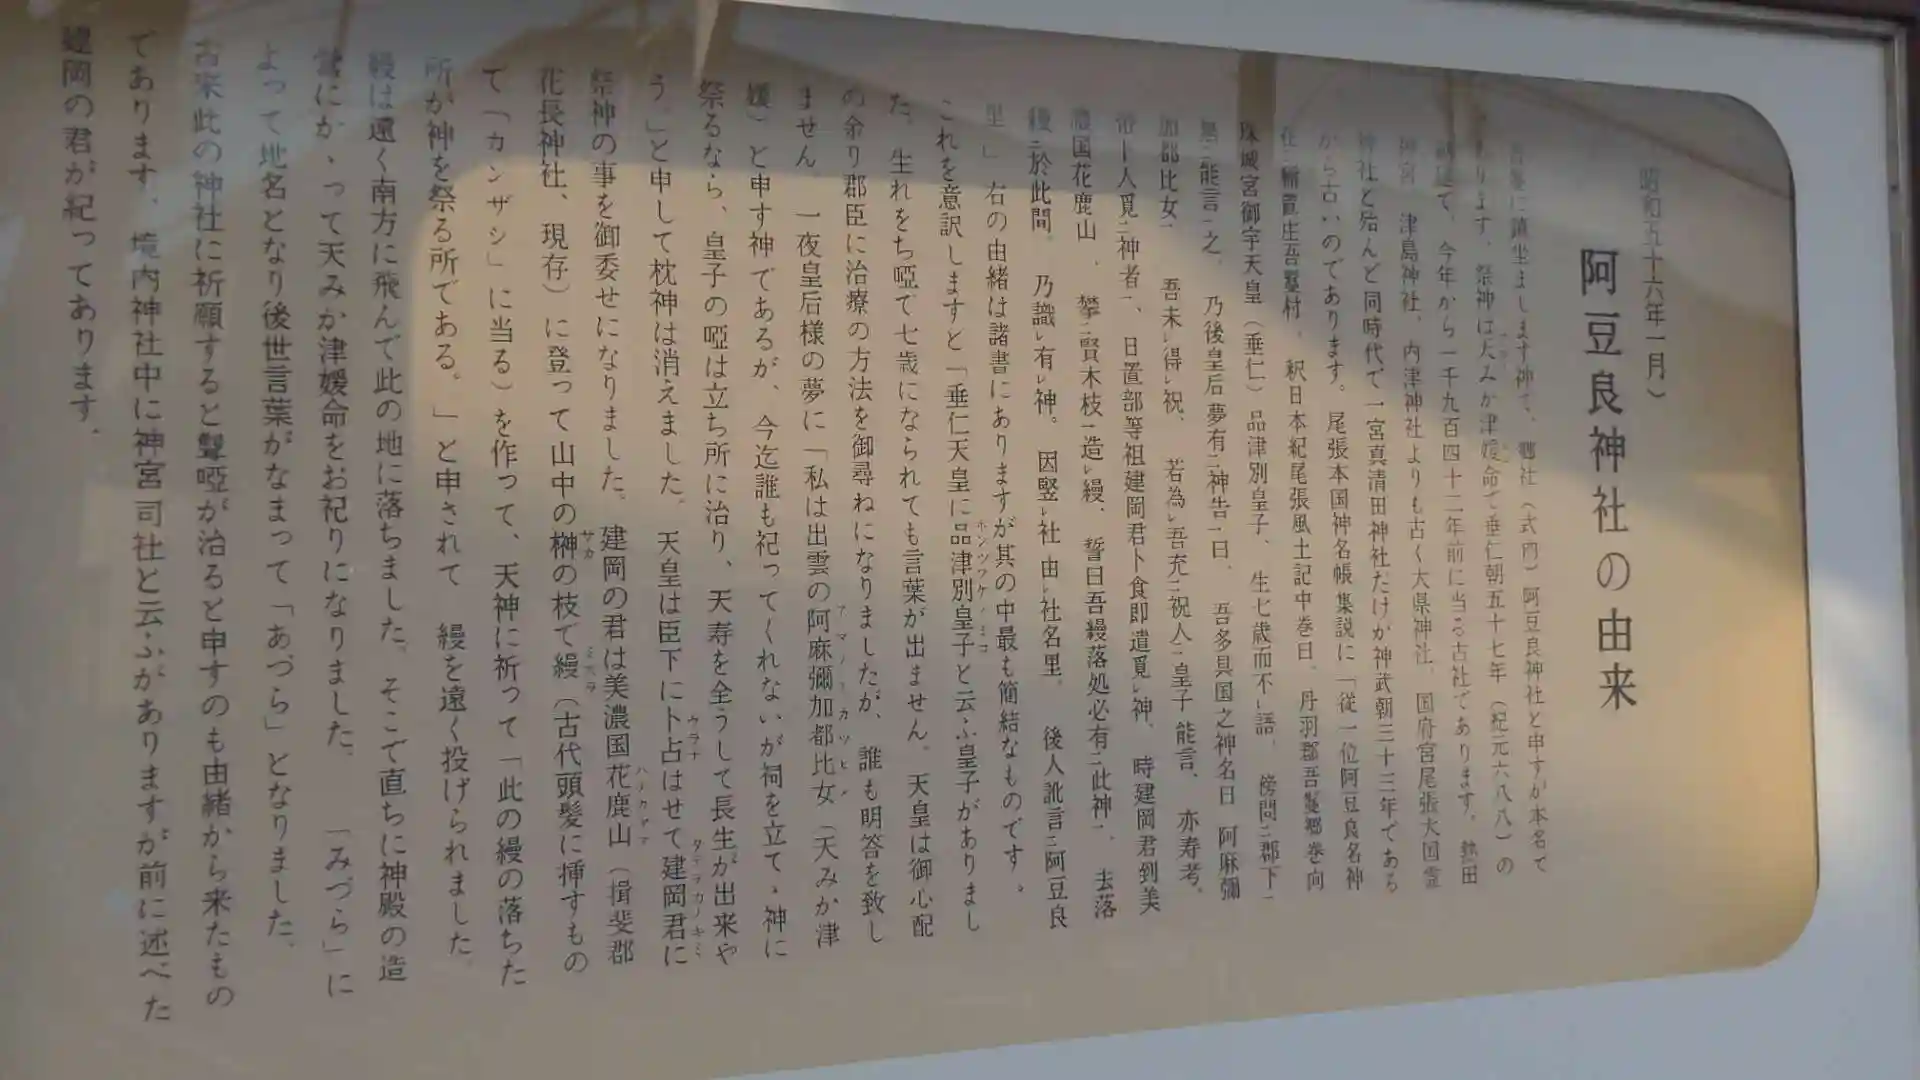 阿豆良神社の由来
昭和五十六年一月)
吾鬘に鎮坐まします神で、郷社(式内)阿豆良神社と申すが本名で
あります。祭神は天みか津媛命で垂仁朝五十七年(紀元六八八)の
創建で、今年から一千九百四十二年前に当る古社であります。熱田
神宮、津島神社、内津神社よりも古く大県神社、国府宮尾張大国霊
神社と殆んど同時代で一宮真清田神社だけが神武朝三十三年である
から古いのであります。尾張本国神名帳集説に「従一位阿豆良名神
在ニ稲置庄吾鬘村、釈日本紀尾張風土記中巻曰、丹羽郡吾鬘郷巻向
珠城宮御宇天皇(垂仁)品津別皇子、生七歳而不レ語、傍問ニ郡下一
無ニ能言一之、乃後皇后夢有ニ神告一曰、吾多具国之神名曰 阿麻彌
加都比女一 吾未レ得レ祝、若為レ吾充ニ祝人一皇子 能言、亦寿考。
帝卜人覓ニ神者一、日置部等祖建岡君卜食即遣覓レ神、時建岡君到美
濃国花鹿山、攀ニ賢木枝一造レ縵、誓曰吾縵落処必有ニ此神一、去落
縵ニ於此間、乃識レ有レ神。因竪レ社 由レ社名里、後人訛言ニ阿豆良
里」右の由緒は諸書にありますが其の中最も簡結なものです。
これを意訳しますと「垂仁天皇に品津別皇子と云ふ皇子がありまし
た。生れをち啞で七歳になられても言葉が出ません。天皇は御心配
の余り郡臣に治療の方法を御尋ねになりましたが、誰も明答を致し
ません。一夜皇后様の夢に「私は出雲の阿麻彌加都比女(天みか津
媛)と申す神であるが、今迄誰も祀ってくれないが祠を立てゝ神に
祭るなら、皇子の啞は立ち所に治り、天寿を全うして長生が出来や
う。」と申して枕神は消えました。天皇は臣下に卜占はせて建岡君に
祭神の事を御委せになりました。建岡の君は美濃国花鹿山(揖斐郡
花長神社、現存)に登って山中の榊の枝で縵(古代頭髪に挿すもの
て「カンザシ」に当る)を作って、天神に祈って「此の縵の落ちた
所が神を祭る所である。」と申されて 縵を遠く投げられました。
縵は遠く南方に飛んで此の地に落ちました。そこで直ちに神殿の造
営にかゝって天みか津媛命をお祀りになりました。「みづら」に
よって地名となり後世言葉がなまって「あづら」となりました。
古来此の神社に祈願すると聾啞が治ると申すのも由緒から来たもの
であります。境内神社中に神宮司社と云ふがありますが前に述べた
建岡の君が紀ってあります。